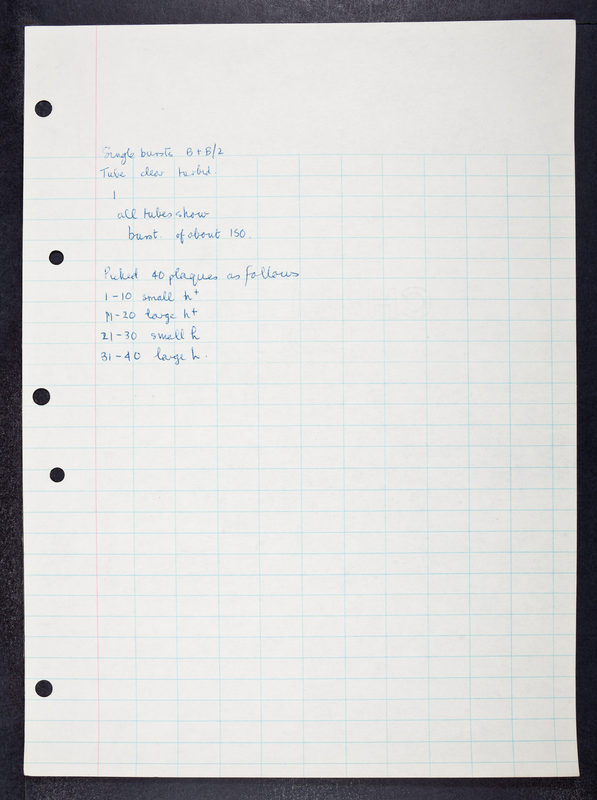 Single bursts B + B/2
Tube clear turbid.
1
all tubes show
burst of about 150.
Picked 40 plaques as follows
1-10 small h+
11-20 large h+
21-30 small h
31-40 large h.